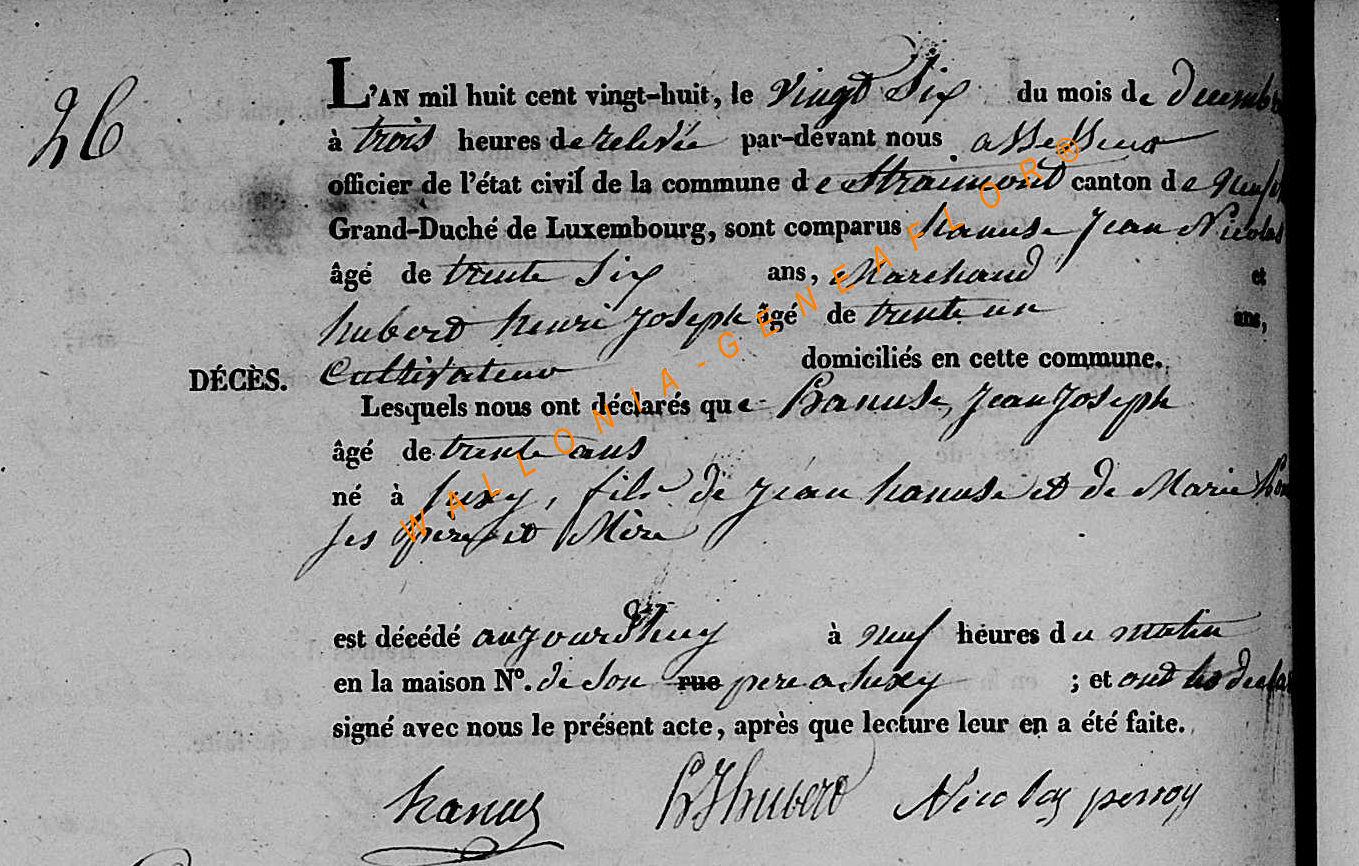 26
L'AN mil huit cent vingt-huit, le vingt Six du mois de decemb
à trois heures de relevée par-devant nous assesseur
officier de l'état civil de la commune de Straimont canton de Neuf
Grand-Duché de Luxembourg, sont comparus hanuse Jean Nicolas
âgé de trente Six ans, Marchand et
hubert henri Joseph âgé de trente un ans,
DÉCÈS. Cultivateur domiciliés en cette commune.
Lesquels nous ont déclarés que hanuse, Jean Joseph
âgé de trente ans
né à Suxy, fils de Jean hanuse et de Marie
ses pere et Mère
est décédé aujourdhuy à neuf heures du matin
en la maison N°. de son rue pere a Suxy ; et ont les decla
signé avec nous le présent acte, après que lecture leur en a été faite.
hanus hJhubert Nicolas perroy
WALLONIA-GENEAFLOR®